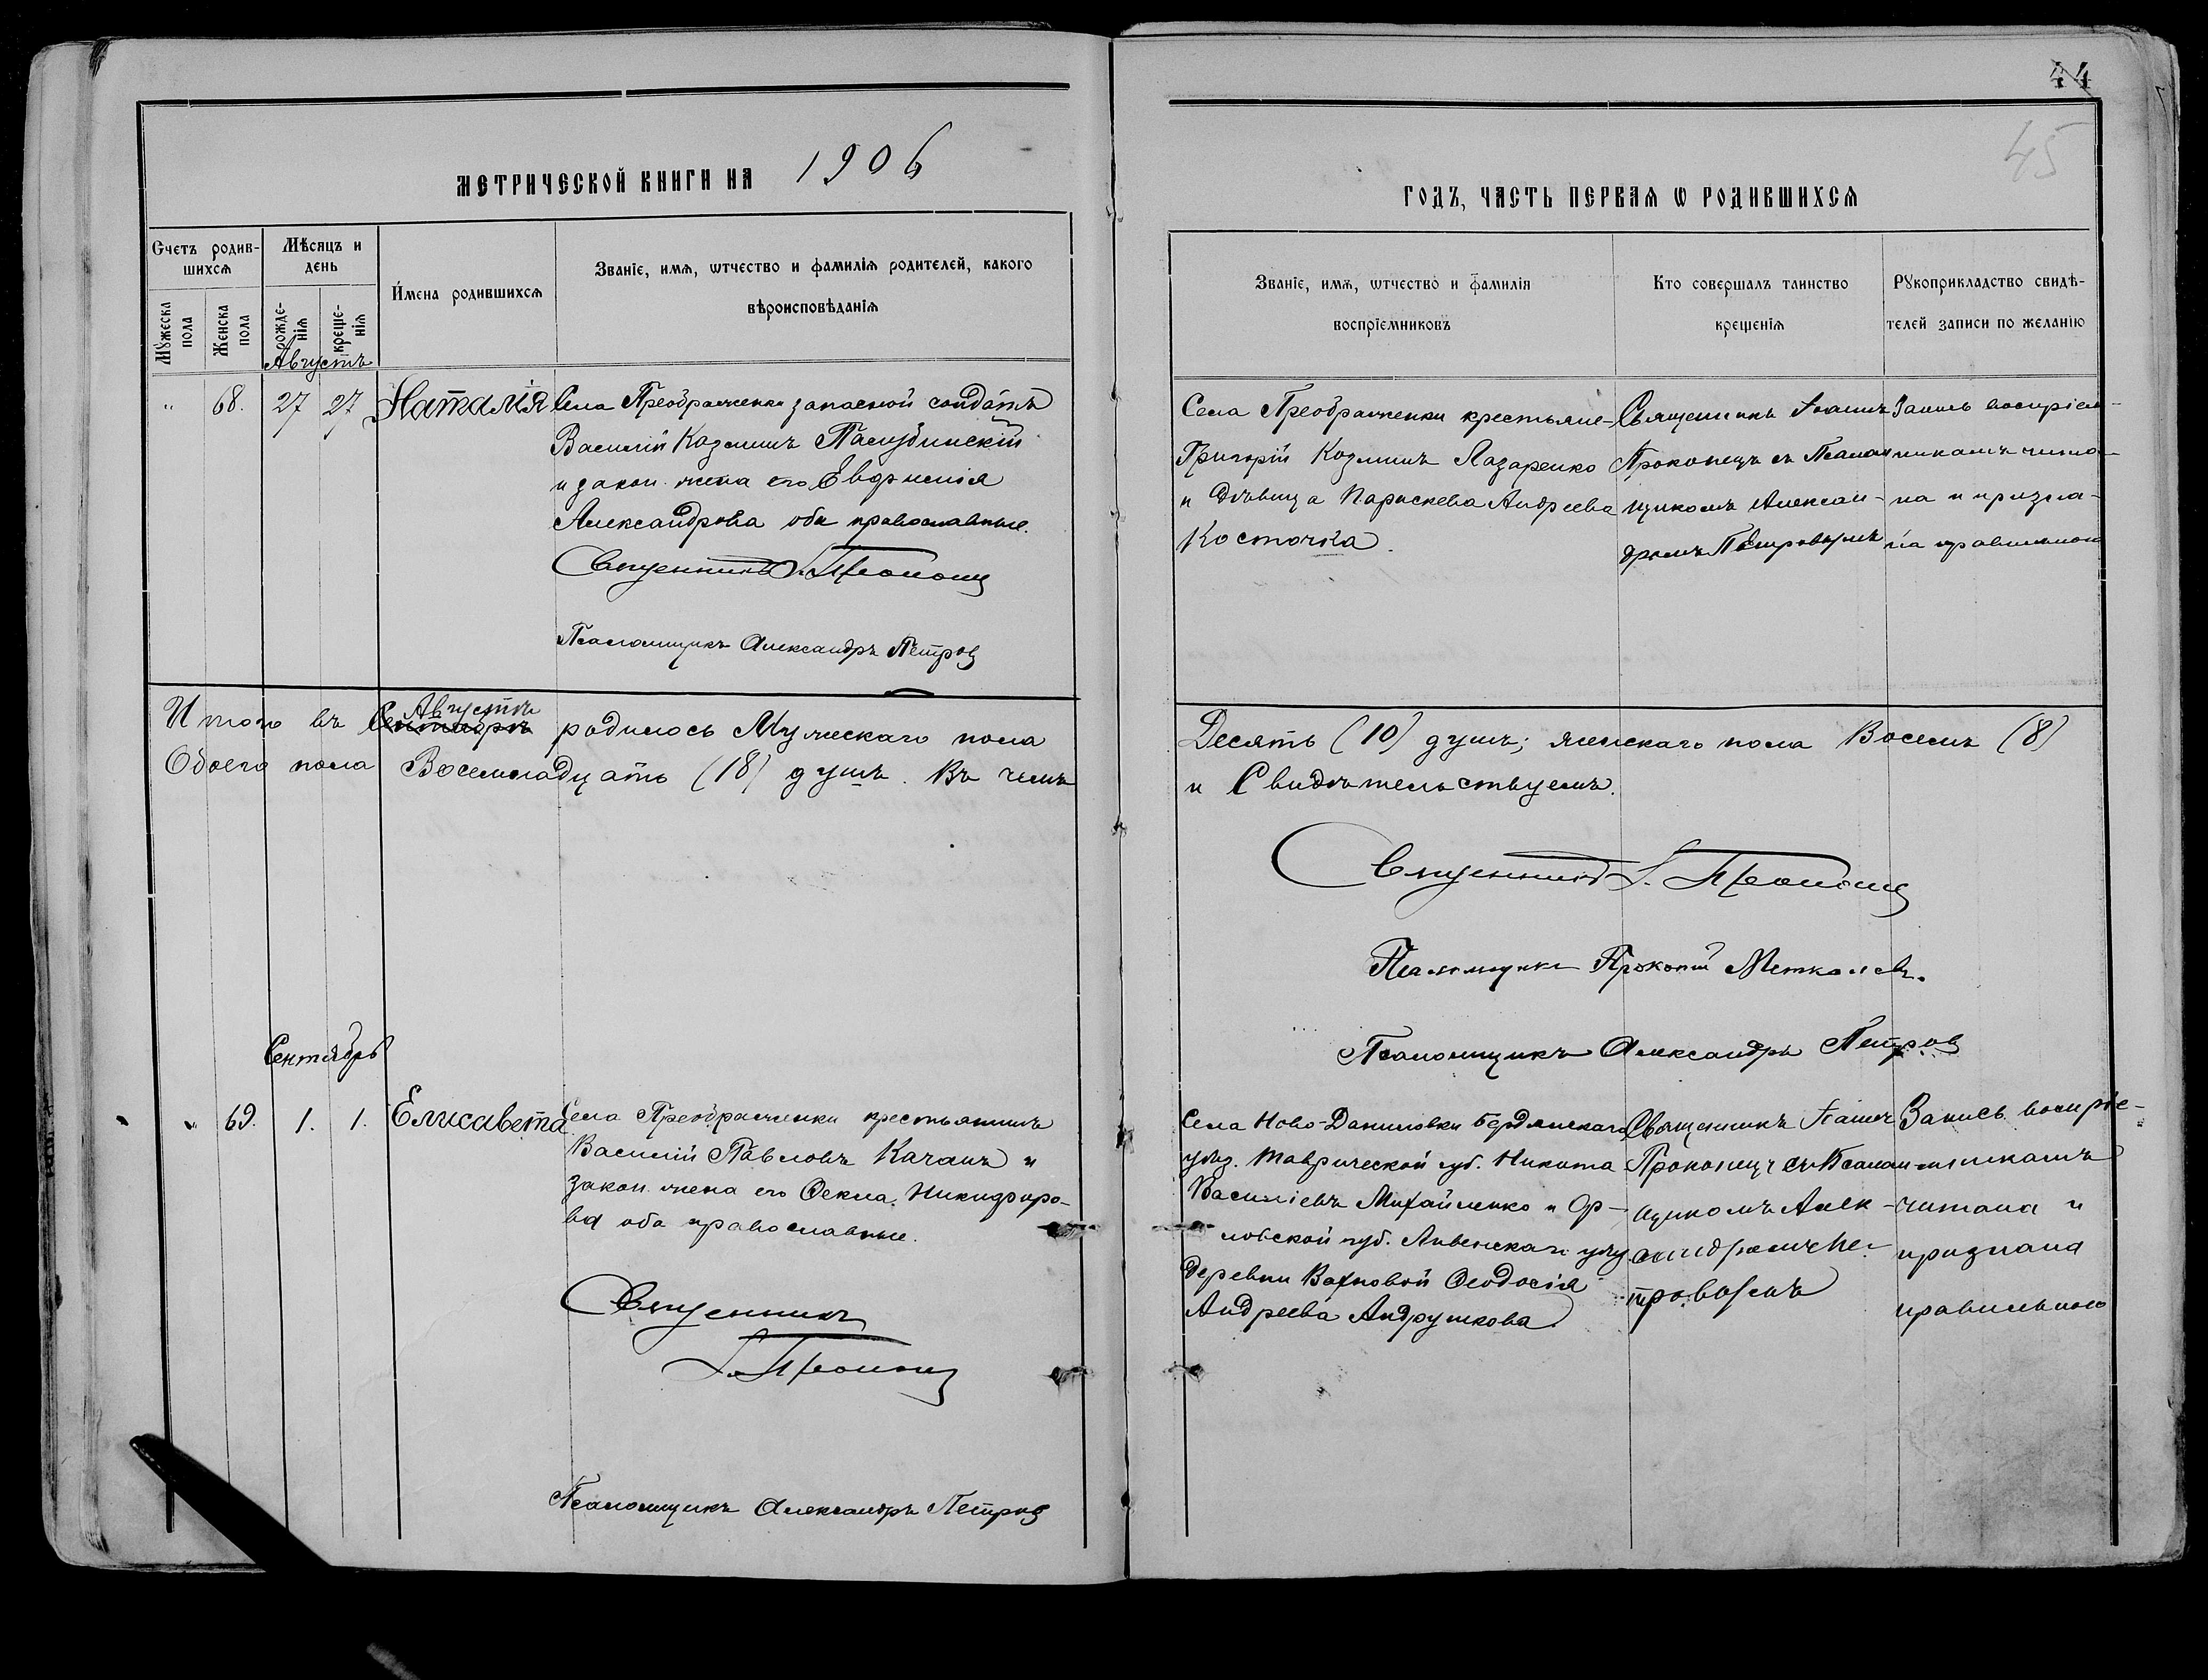 44
45
МЕТРИЧЕСКОЙ КНИГИ НА 1906
ГОДЪ, ЧАСТЬ ПЕРВАЯ Ѡ РОДИВШИХСѦ
Счетъ родив-
шихсѧ
Мѣсяцъ и
день
Имена родившихсѧ
Званіе, имѧ, ѡтчество и фамиліѧ родителей, какого
вѣроисповѣданіѧ
Мужеска
пола
Женска
пола
рожде-
ніѧ
креще-
ніѧ
Званіе, имѧ, ѡтчество и фамиліѧ
воспріемниковъ
Кто совершалъ таинство
крещеніѧ
Рукоприкладство свидѣ-
телей записи по желанію
Августъ
" 68. 27 27 Наталія
Села Преображенки запасной солдатъ
Василій Козминъ
и закон. жена его Евфросинія
Александрова оба православные.
Священникъ І. Прокопец
Псаломщикъ Александръ Петров
Села Преображенки крестьяне-
Григорій Козминъ Лазаренко
и Дѣвица Параскева Андреева
Косточка.
Священникъ Іоаннъ
Прокопецъ съ Псалом
щикомъ Алексан-
дромъ Петровымъ
Запись воспріем-
никамъ чита-
на и призна-
на правильною
Итого въ Сентябрѣ Августѣ родилось Мужескаго пола
Десять (10) душъ; женскаго пола Восемь (8)
Обоего пола Восемнадцать (18) душъ. Въ чемъ
и Свидѣтельствуемъ.
Священникъ І. Прокопец
Псаломщикъ Прокопій
Псаломщикъ Александръ Петров
Сентябрь
" 69. 1. 1. Елисавета
Села Преображенки крестьянинъ
Василій Павловъ Качанъ и
закон. жена его Ѳекла Никифоро-
ва оба православные.
Священникъ
І. Прокопец
Псаломщикъ Александръ Петров
Села Ново-Даниловки Бердянскаго
уѣзд. Таврической губ. Никита
Василіевъ Михайленко и Ор-
ловской губ. Ливенскаго уѣзд
деревни Ѳеодосія
Андреева Андрушкова
Священникъ Іоаннъ
Прокопецъ съ Псалом
щикомъ Алек-
сандромъ Пе-
тровымъ
Запись воспріе-
мникамъ
читана и
признана
правильною